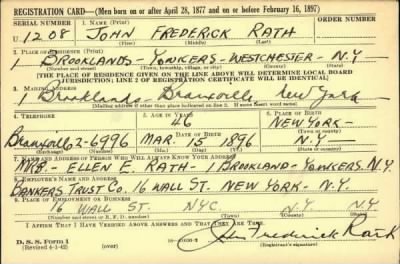 REGISTRATION CARD—(Men born on or after April 28, 1877 and on or before February 16, 1897)
SERIAL NUMBER 1. NAME (Print) ORDER NUMBER
U 1208 JOHN FREDERICK RATH
(First) (Middle) (Last)
2. PLACE OF RESIDENCE (Print)
1 BROOKLANDS - YONKERS - WESTCHESTER - N.Y.
(Number and street) (Town, township, village, or city) (County) (State)
[THE PLACE OF RESIDENCE GIVEN ON THE LINE ABOVE WILL DETERMINE LOCAL BOARD
JURISDICTION; LINE 2 OF REGISTRATION CERTIFICATE WILL BE IDENTICAL]
3. MAILING ADDRESS
1 Brooklands Bronxville New York
[Mailing address if other than place indicated on line 2. If same insert word same]
4. TELEPHONE 5. AGE IN YEARS 6. PLACE OF BIRTH
46 NEW YORK -
DATE OF BIRTH
Bronxville 2-6996 MAR. 15 1896 N.Y.
7. NAME AND ADDRESS OF PERSON WHO WILL ALWAYS KNOW YOUR ADDRESS
MRS. - ELLEN E. RATH - 1 BROOKLAND - YONKERS. N.Y.
8. EMPLOYER'S NAME AND ADDRESS
BANKERS TRUST CO. 16 WALL ST. NEW YORK - N.Y.
9. PLACE OF EMPLOYMENT OR BUSINESS
16 WALL ST. NYC. N.Y. N.Y.
(Number and street or R. F. D. number) (Town) (County) (State)
I AFFIRM THAT I HAVE VERIFIED ABOVE ANSWERS AND THAT THEY ARE TRUE.
D. S. S. Form 1
(Revised 4-1-42) (over) John Frederick Rath
(Registrant's signature)